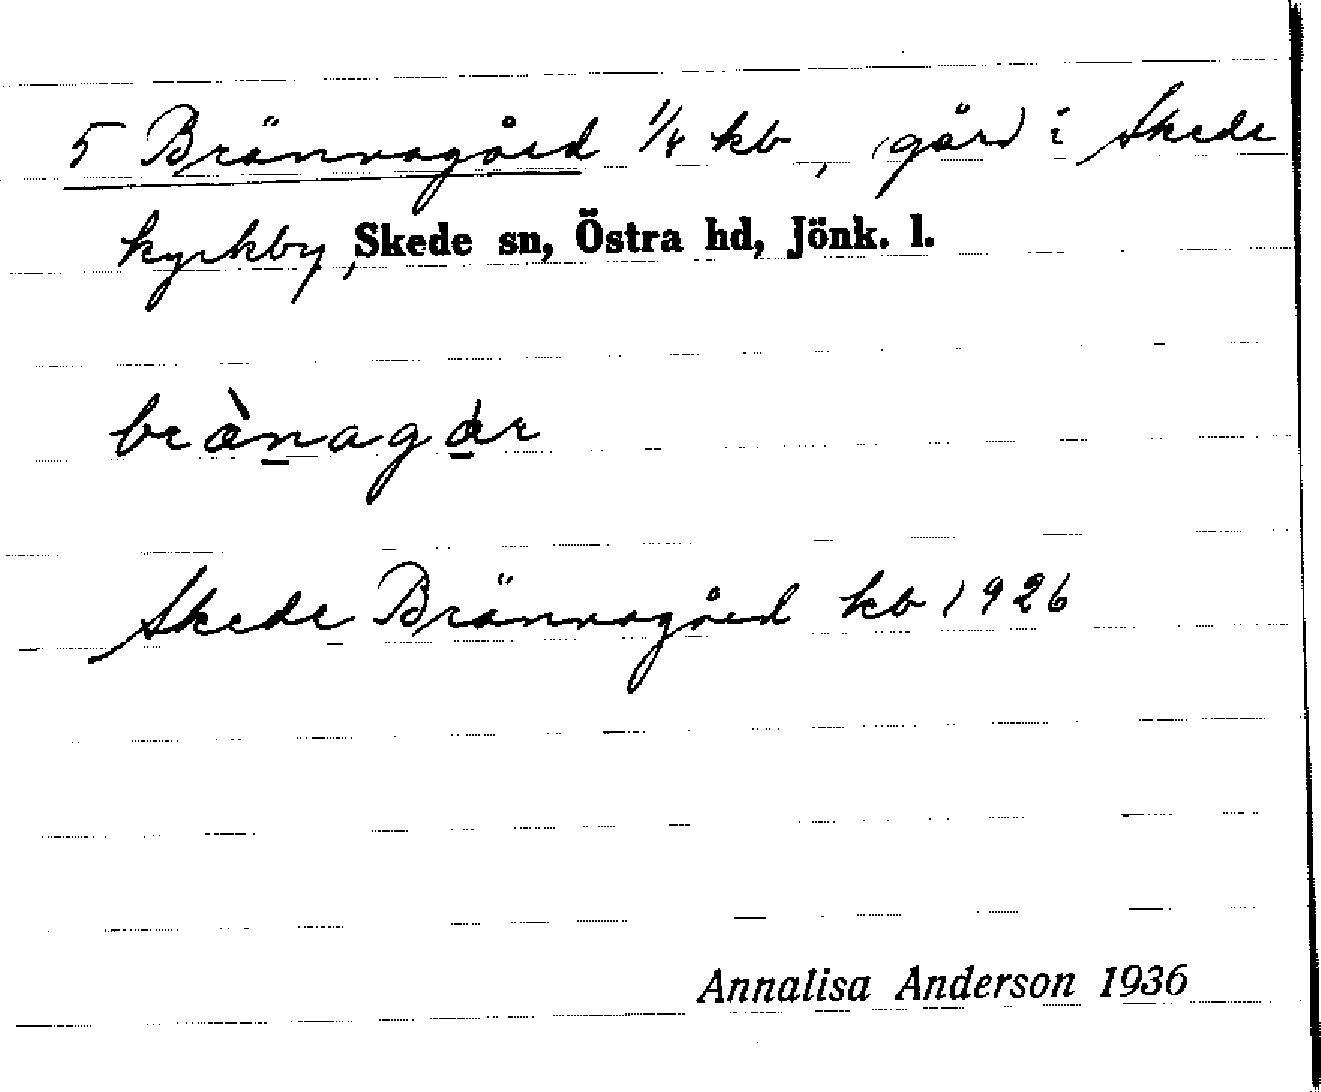 5 Brännagård 1/4 kb, gård i Skede
kyrkby, Skede sn, Östra hd, Jönk. l.
brä̀nagår
Skede Brännagård kb 1926
Annalisa Anderson 1936